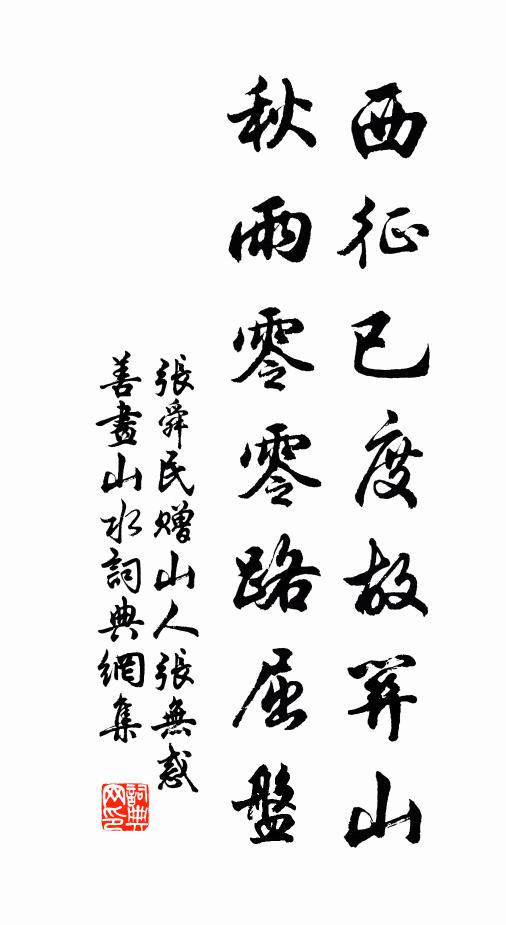 西征已度故關山
秋雨零零路屈盤
張舜民贈山人張無惑
善畫山水詞典網集
詞典
网印